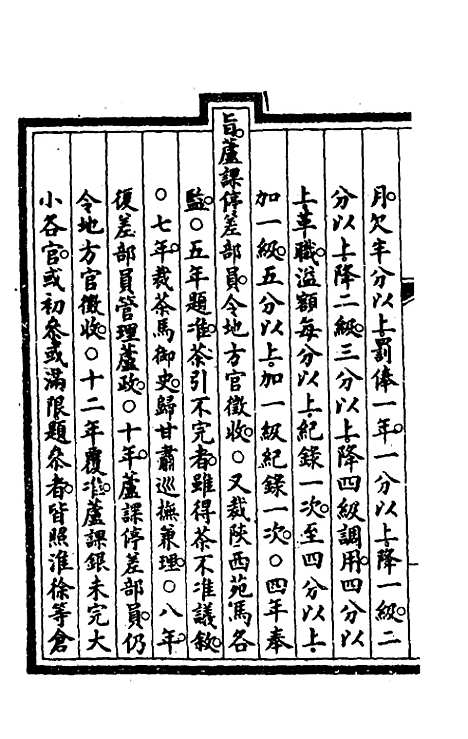 月。欠半分以上罰俸一年。一分以上降一級。二
分以上降二級。三分以上降四級調用。四分以
上革職。溢額每分以上紀錄一次。至四分以上
加一級。五分以上加一級紀錄一次。○四年奉
旨。蘆課停差部員。令地方官徵收。○又裁陝西苑馬各
監。○五年題准。茶引不完者。雖得茶不准議敘。
○七年。裁茶馬御史。歸甘肅巡撫兼理。○八年
復差部員管理蘆政。○十年。蘆課停差部員。仍
令地方官徵收。○十二年覆准。蘆課銀未完大
小各官。或初參或滿限題參者。皆照淮徐等倉